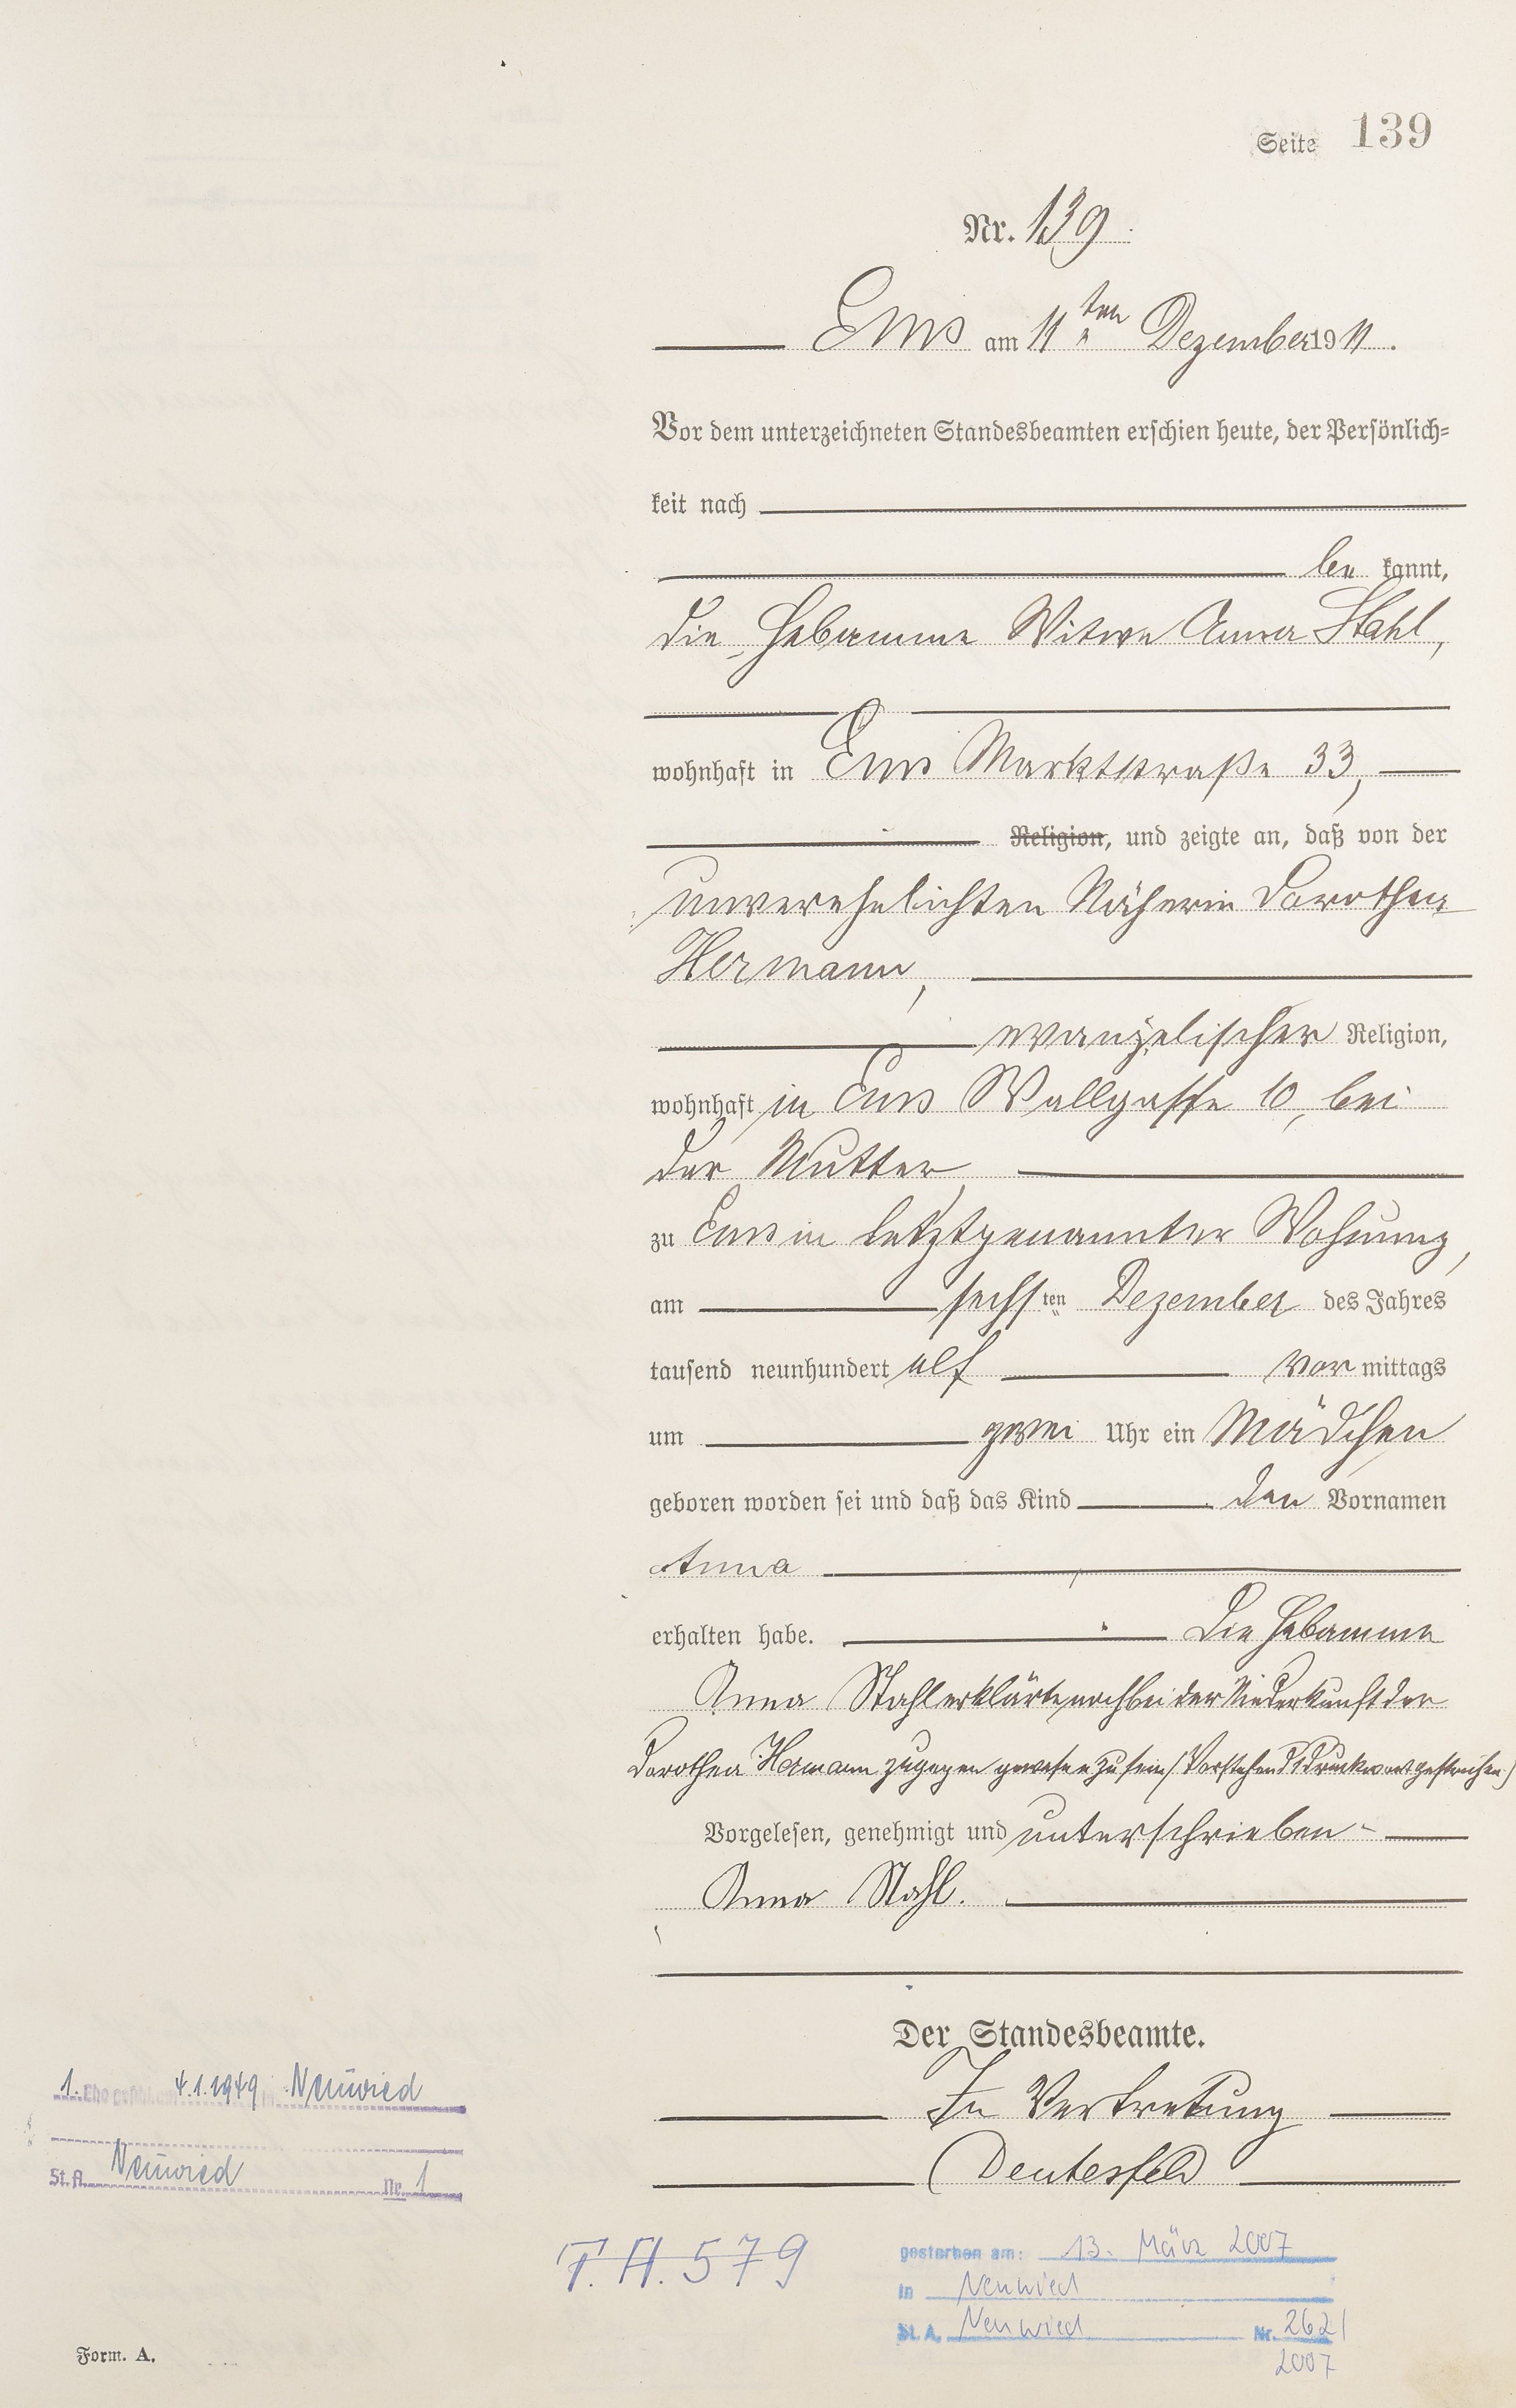 Seite 139
Nr. 139.
Ems am 11ten Dezember 1911.
Vor dem unterzeichneten Standesbeamten erschien heute, der Persönlich-
keit nach
be kannt,
die Hebamme Witwe Anna Stahl,
wohnhaft in Ems Marktstraße 33,
Religion, und zeigte an, daß von der
unverehelichten Näherin Dorothea
Hermann,
evangelischer Religion,
wohnhaft in Ems Wallgasse 10, bei
der Mutter,
zu Ems in letztgenannter Wohnung,
am sechsten Dezember des Jahres
tausend neunhundert elf vor mittags
um zwei Uhr ein Mädchen
geboren worden sei und daß das Kind den Vornamen
Anna
erhalten habe. Die Hebamme
Anna Stahl erklärte, noch bei der Niederkunft der
Dorothea Hermann zugegen gewesen zu sein (Vorstehend 1 Druckwort gestrichen.)
Vorgelesen, genehmigt und unterschrieben
Anna Stahl.
Der Standesbeamte.
In Vertretung
Deutesfeld
1. Ehe geschl. am 4.1.1949 in Neuwied
St. A. Neuwied Nr. 1
T.A. 579
gestorben am: 13. März 2007
in Neuwied
St. A. Neuwied Nr. 262/
2007
Form. A.